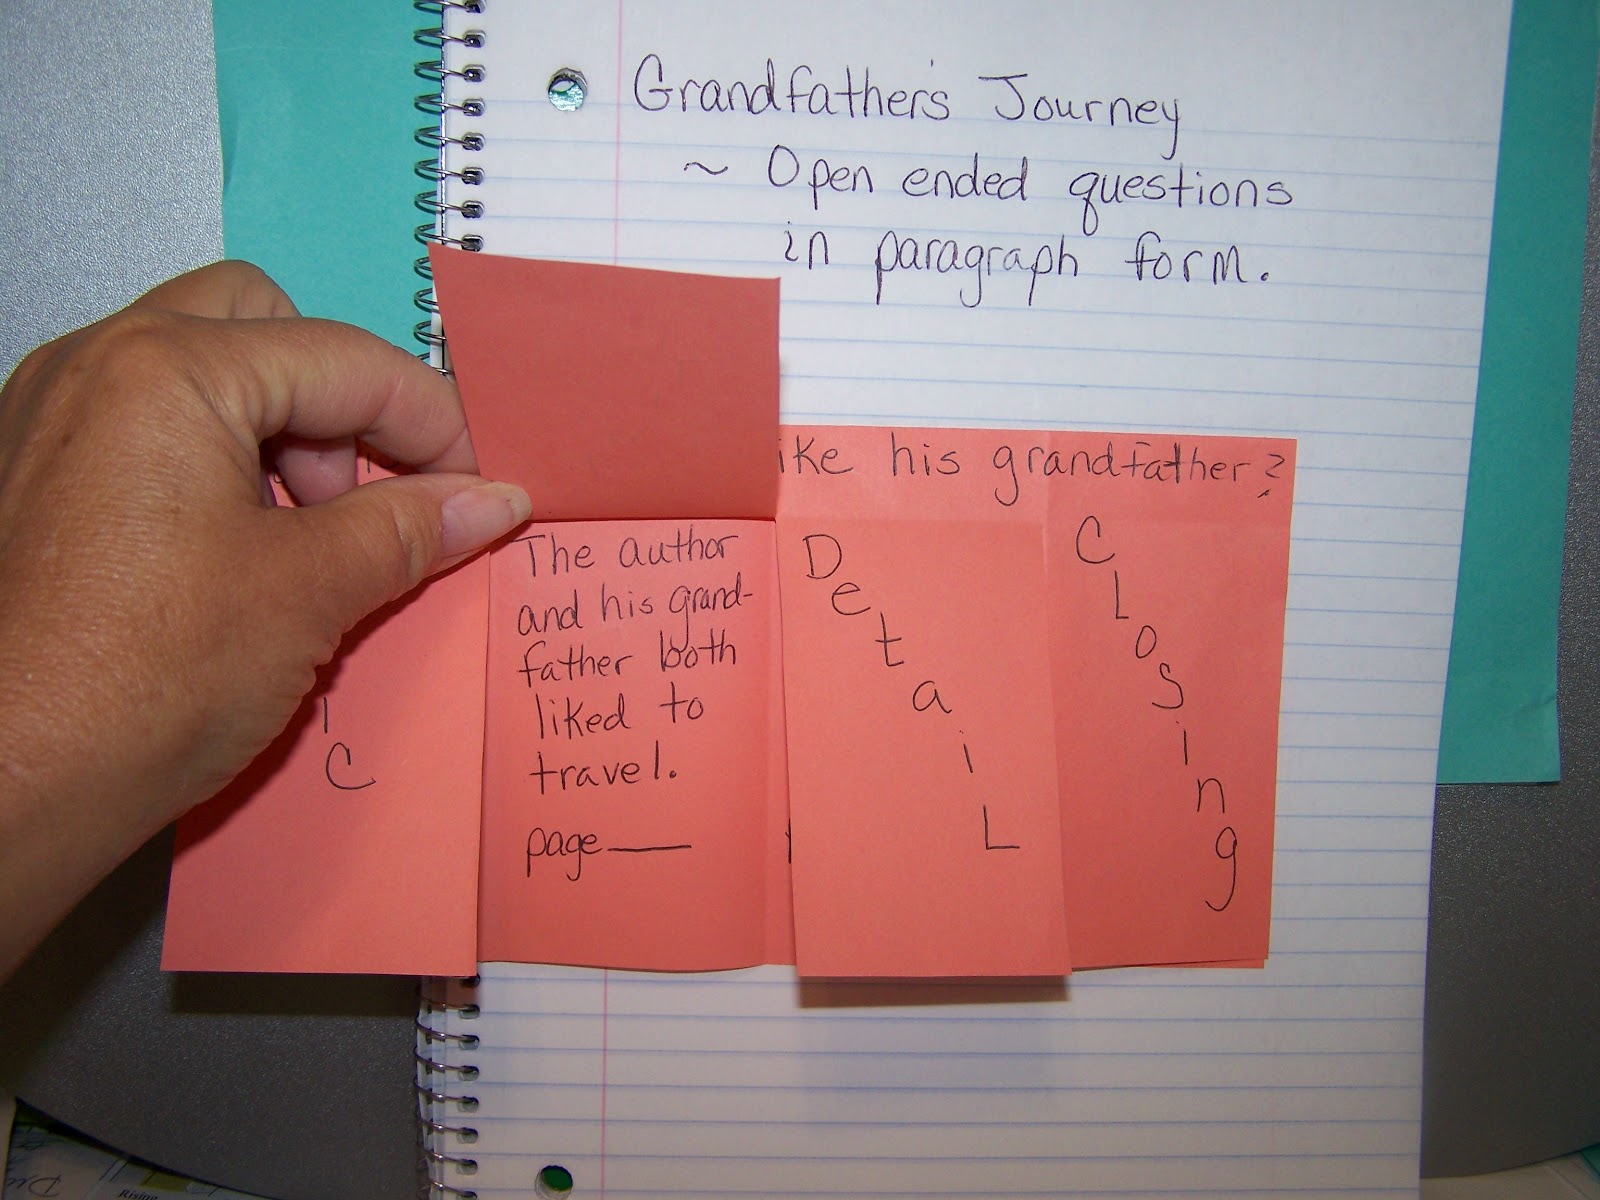 Grandfather's Journey
~ Open ended questions
in paragraph form.
ike his grandfather?
The author
and his grand-
father both
liked to
travel.
page___
i
C
DetaiL
CLoSing
Rising